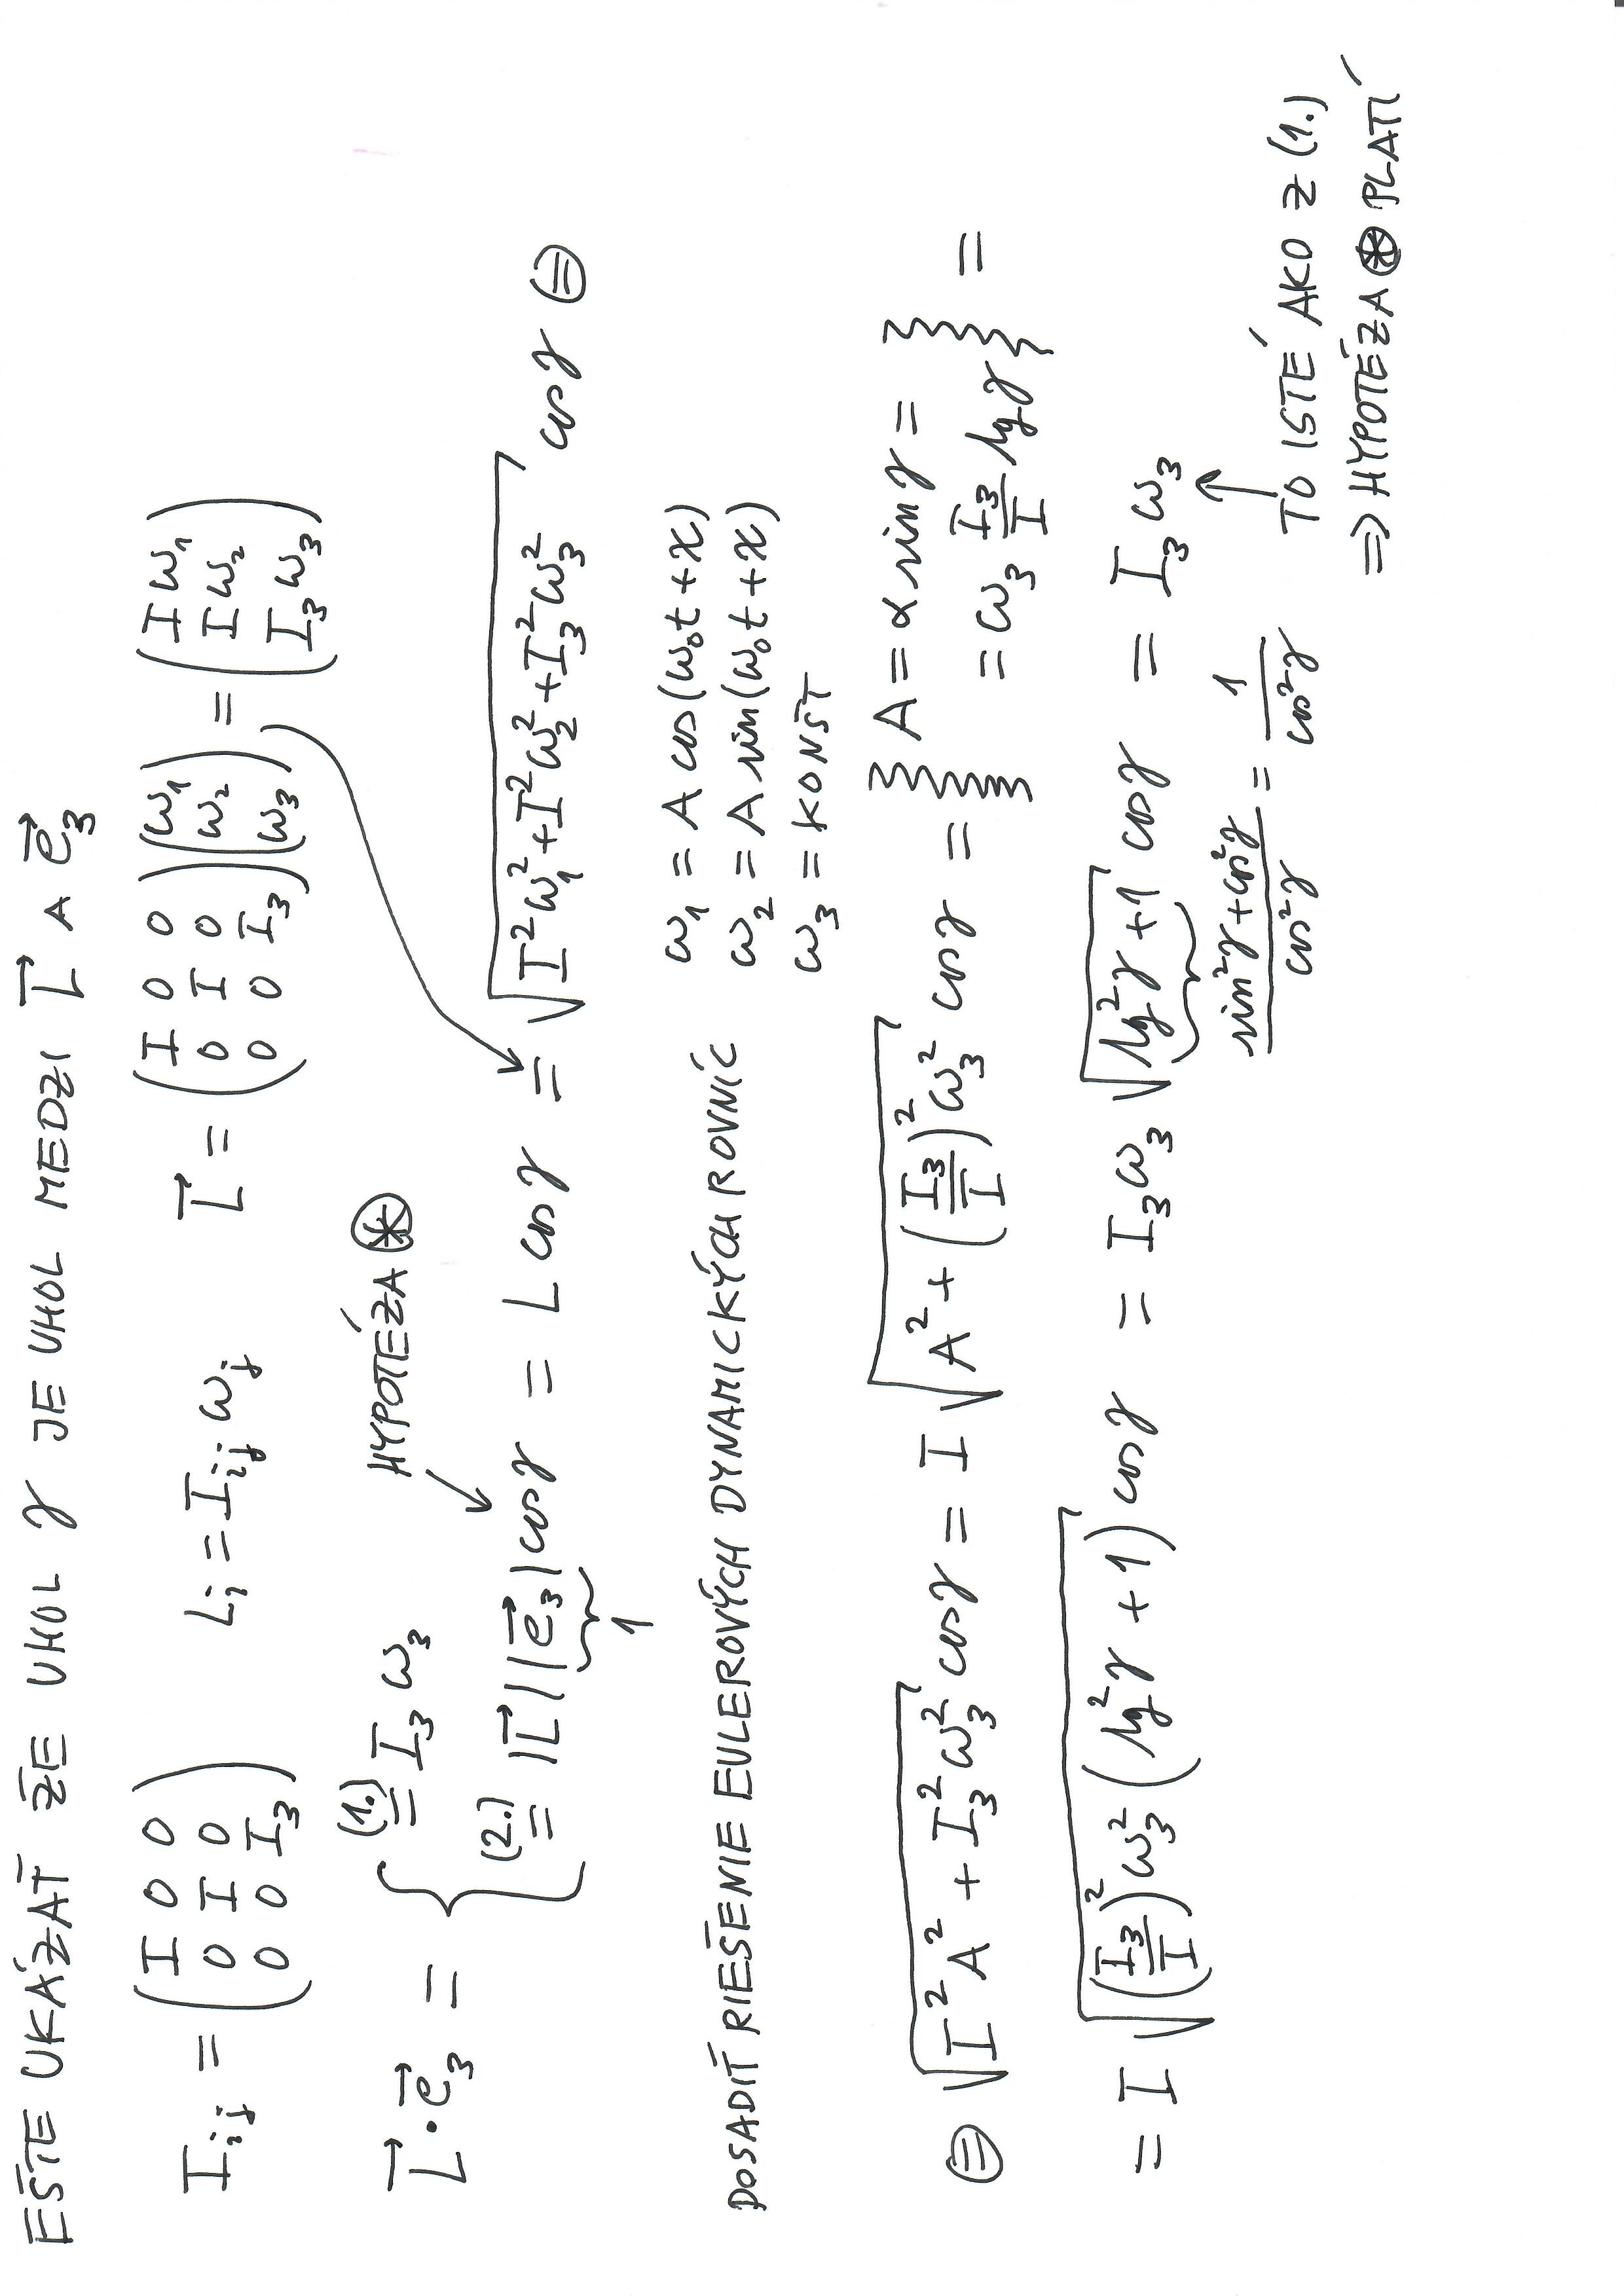 EŠTE UKÁZAŤ ŽE UHOL γ JE UHOL MEDZI L⃗ A e⃗₃
I_ij = (I 0 0; 0 I 0; 0 0 I₃) L_i = I_ij ω_j L⃗ = (I 0 0; 0 I 0; 0 0 I₃)(ω₁; ω₂; ω₃) = (Iω₁; Iω₂; I₃ω₃)
L⃗·e⃗₃ = {
(1.) = I₃ω₃
HYPOTÉZA ⊛
(2.) = |L⃗||e⃗₃| cosγ = L cosγ = √(I²ω₁² + I²ω₂² + I₃²ω₃²) cosγ ⊜
1
DOSADIŤ RIEŠENIE EULEROVÝCH DYNAMICKÝCH ROVNÍC
ω₁ = A cos(ω₀t + ϰ)
ω₂ = A sin(ω₀t + ϰ)
ω₃ = KONŠT
⊜ √(I²A² + I₃²ω₃²) cosγ = I √(A² + (I₃/I)²ω₃²) cosγ = { A = α sinγ = ω₃ I₃/I tgγ } =
= I √((I₃/I)²ω₃²(tg²γ + 1)) cosγ = I₃ω₃ √(tg²γ + 1) cosγ = I₃ω₃
(sin²γ + cos²γ)/cos²γ = 1/cos²γ
TO ISTÉ AKO Z (1.)
⇒ HYPOTÉZA ⊛ PLATÍ